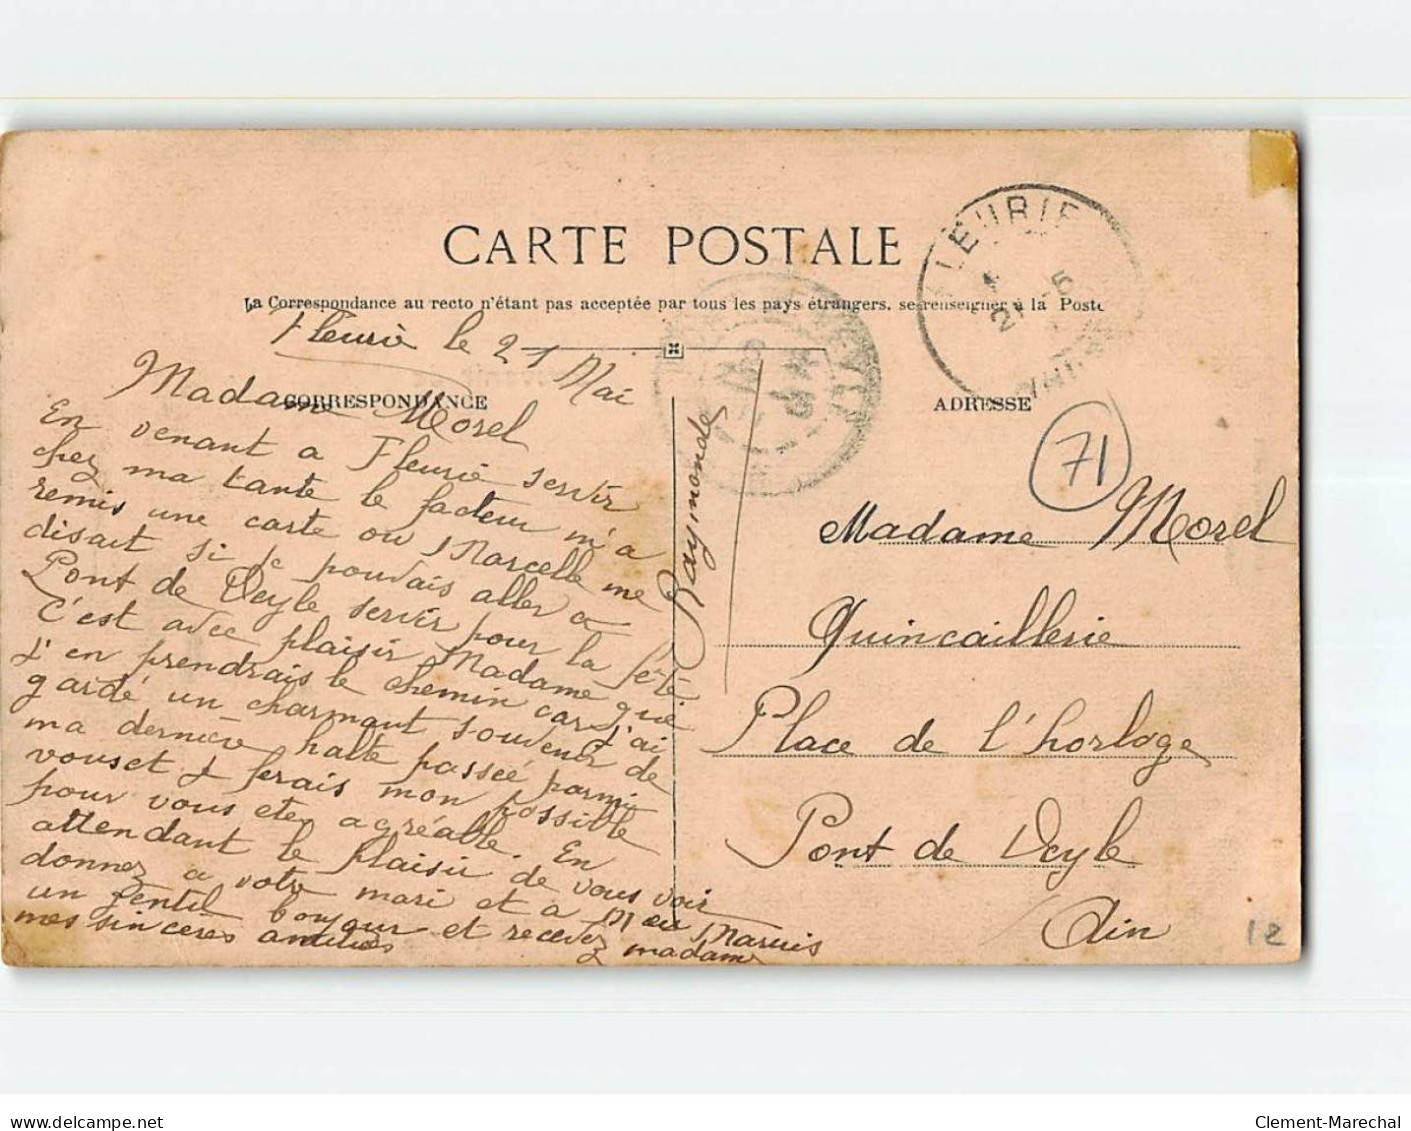 CARTE POSTALE
La Correspondance au recto n'étant pas acceptée par tous les pays étrangers, se renseigner à la Poste
Fleurie le 21 Mai
CORRESPONDANCE
Madame Morel
En venant a Fleurie servir
chez ma tante le facteur m'a
remis une carte ou Marcelle me
disait si je pouvais aller a
Pont de Veyle servir pour la fête
C'est avec plaisir Madame que
j'en prendrais le chemin car j'ai
gardé un charmant souvenir de
ma dernière halte passée parmi
vous et je ferais mon possible
pour vous etre agréable. En
attendant le plaisir de vous voir
donnez a votre mari et a Marius
un gentil bonjour et recevez madame
mes sincères amitiés
Raymonde
FLEURIE
2 -5
ADRESSE
71
Madame Morel
Quincaillerie
Place de l'horloge
Pont de Veyle
Ain
12
delcampe.net
Clement-Marechal